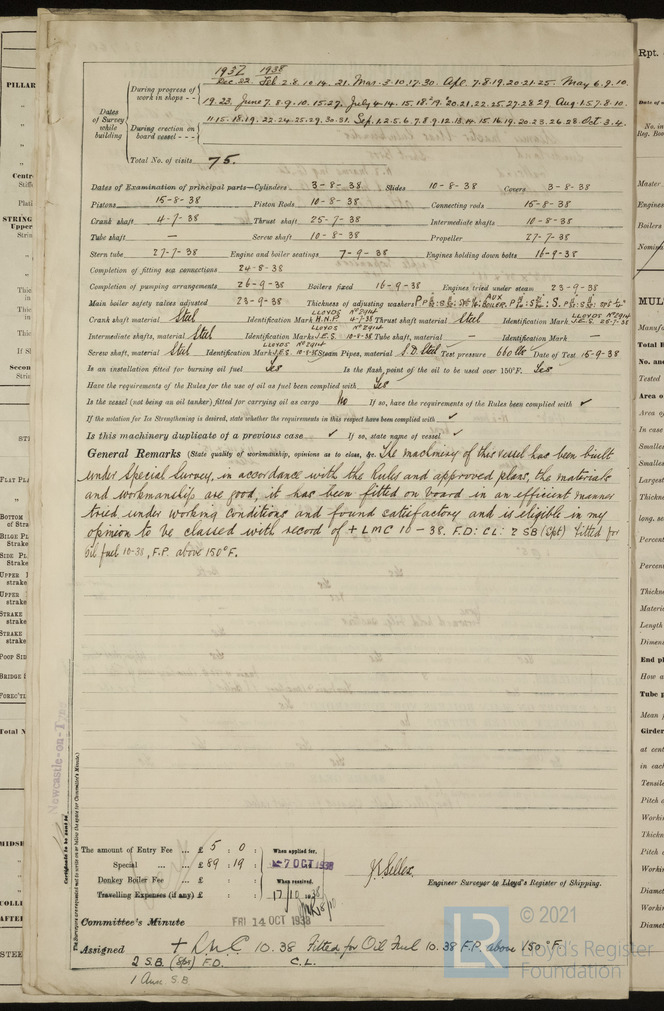 1937 1938
Dec. 22. Feb 2.8.10.14.21. Mar. 3.10.17.30. Apl. 7.8.19.20.21.25. May 6.9.10.
During progress of work in shops - -
19.23. June 7.8.9.10.15.27. July 4.14.15.18.19.20.21.22.25.27.28.29. Aug. 1.5.7.8.10.
Dates of Survey while building
During erection on board vessel - - -
11.15.18.19.22.24.25.29.30.31. Sep. 1.2.5.6.7.8.9.12.13.14.15.16.19.20.23.26.28. Oct. 3.4.
Total No. of visits 75.
Dates of Examination of principal parts—Cylinders 3-8-38 Slides 10-8-38 Covers 3-8-38
Pistons 15-8-38 Piston Rods 10-8-38 Connecting rods 15-8-38
Crank shaft 4-7-38 Thrust shaft 25-7-38 Intermediate shafts 10-8-38
Tube shaft — Screw shaft 10-8-38 Propeller 27-7-38
Stern tube 27-7-38 Engine and boiler seatings 7-9-38 Engines holding down bolts 16-9-38
Completion of fitting sea connections 24-8-38
Completion of pumping arrangements 26-9-38 Boilers fixed 16-9-38 Engines tried under steam 23-9-38
Main boiler safety valves adjusted 23-9-38 Thickness of adjusting washers AUX BOILER.
Crank shaft material Steel Identification Mark LLOYDS Nº 2914 H.N.P. 4-7-38 Thrust shaft material Steel Identification Mark LLOYDS Nº 2914 J.E.S. 25-7-38
Intermediate shafts, material Steel Identification Marks LLOYDS Nº 2914 J.E.S. 10-8-38 Tube shaft, material — Identification Mark —
Screw shaft, material Steel Identification Mark LLOYDS Nº 2914 J.E.S. 10-8-38 Steam Pipes, material S.D. Steel Test pressure 660 lb Date of Test 15-9-38
Is an installation fitted for burning oil fuel Yes Is the flash point of the oil to be used over 150°F. Yes
Have the requirements of the Rules for the use of oil as fuel been complied with Yes
Is the vessel (not being an oil tanker) fitted for carrying oil as cargo No If so, have the requirements of the Rules been complied with ✓
If the notation for Ice Strengthening is desired, state whether the requirements in this respect have been complied with ✓
Is this machinery duplicate of a previous case ✓ If so, state name of vessel ✓
General Remarks (State quality of workmanship, opinions as to class, &c. The machinery of this vessel has been built
under Special Survey, in accordance with the Rules and approved plans, the materials
and workmanship are good, it has been fitted on board in an efficient manner
tried under working conditions and found satisfactory and is eligible in my
opinion to be classed with record of + LMC 10-38. F.D: C.L: 2 SB (Spt) Fitted for
oil fuel 10-38, F.P. above 150°F.
Newcastle-on-Tyne
The amount of Entry Fee ... £ 5 : 0 :
Special ... ... £ 89 : 19 :
Donkey Boiler Fee ... £ : :
Travelling Expenses (if any) £ : :
When applied for,
7 OCT 1938
When received,
17/10/1938
Engineer Surveyor to Lloyd's Register of Shipping.
Committee's Minute
FRI 14 OCT 1938
Assigned + L.M.C 10.38 Fitted for Oil Fuel 10.38 F.P. above 150°F.
2 S.B. (Spt) F.D. C.L.
1 Aux. S.B
© 2021
LR
Lloyd's Register
Foundation
Rpt.
PILLAR
STRING
Upper
FLAT
BOTTOM
of Stra
BILGE
Strake
SIDE
UPPER
strake
STRAKE
POOP SID
BRIDGE
FORE'C
Total N
MIDSH
COLLI
AFTE
STEE
Master
Engines
Boilers
MUL
Manufa
Total
No. and
Tested
Area o
In case
Smalles
Largest
Thickne
long. s
Percent
Materia
Length
Dimen
End pl
How a
Tube p
Mean
Girder
at cent
in each
Tensile
Pitch o
Workin
Thickn
Diamet